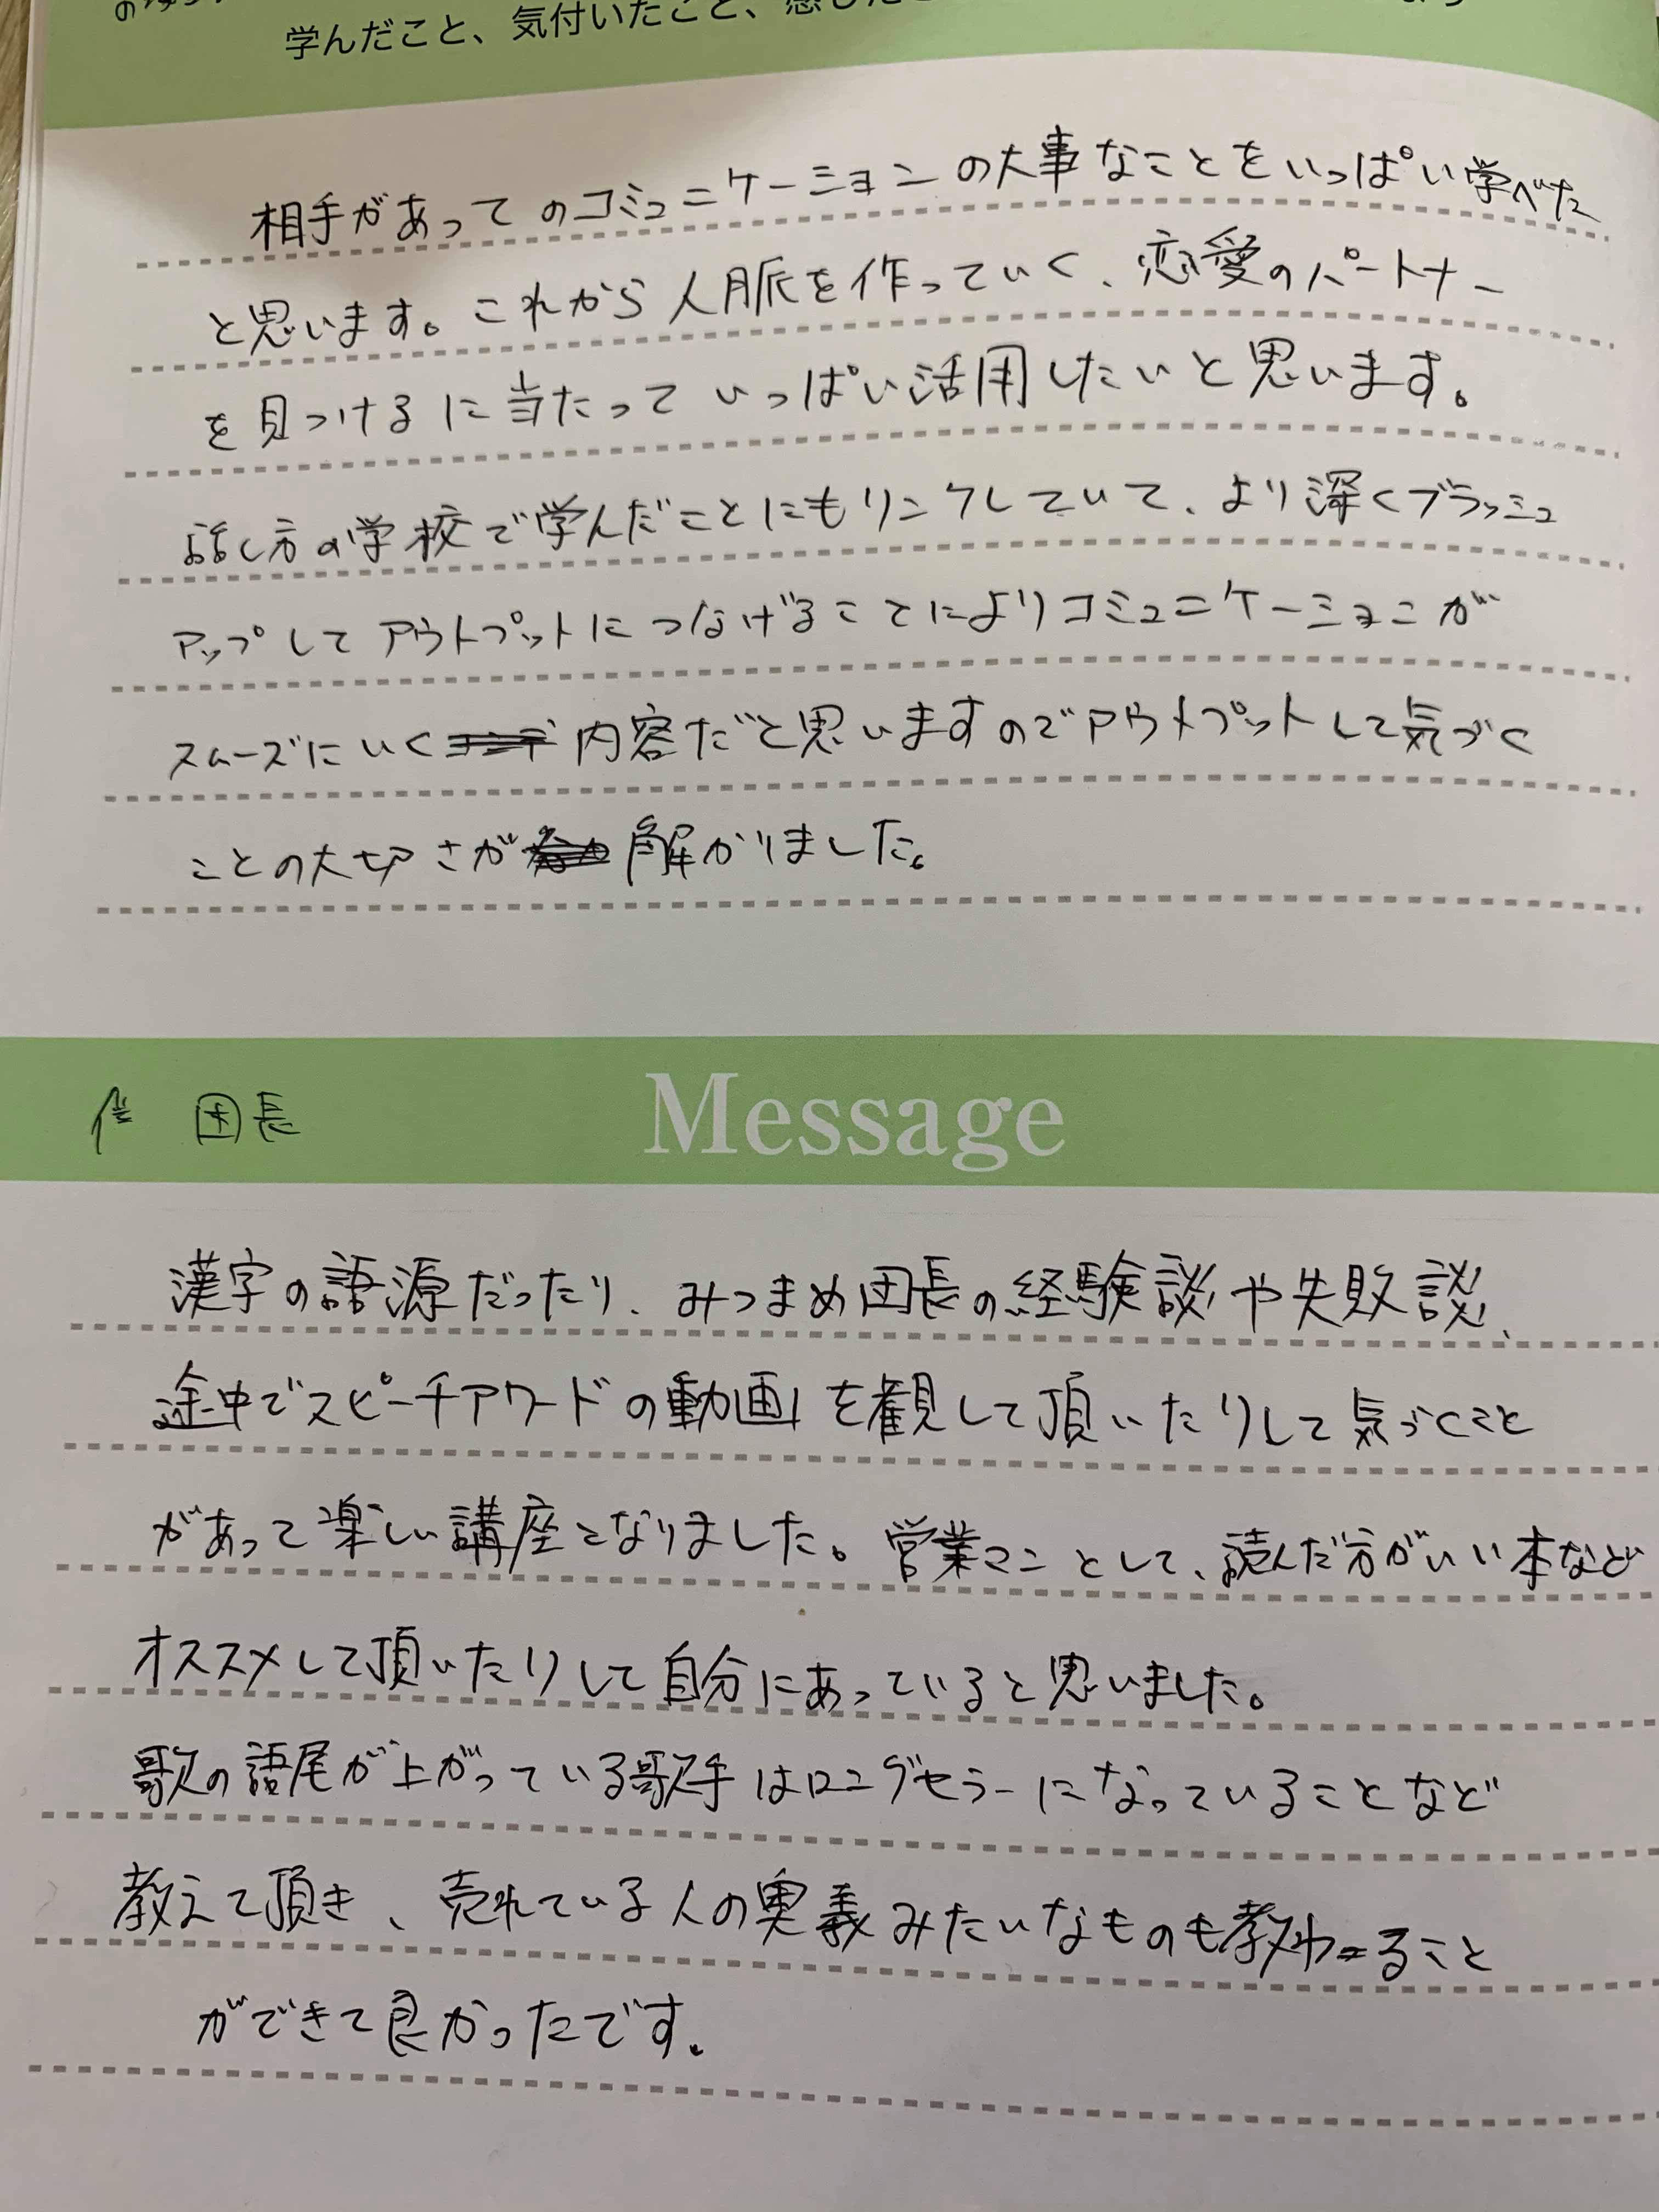 学んだこと、気付いたこと、感じたこ
相手があってのコミュニケーションの大事なことをいっぱい学べた
と思います。これから人脈を作っていく、恋愛のパートナー
を見つけるに当たっていっぱい活用したいと思います。
話し方の学校で学んだことにもリンクしていて、より深くブラッシュ
アップしてアウトプットにつなげることによりコミュニケーションが
スムーズにいく内容だと思いますのでアウトプットして気づく
ことの大切さが解かりました。
団長
Message
漢字の語源だったり、みつまめ団長の経験談や失敗談、
途中でスピーチアワードの動画を観して頂いたりして気づくこと
があって楽しい講座となりました。営業マンとして、読んだ方がいい本など
オススメして頂いたりして自分にあっていると思いました。
歌の語尾が上がっている歌手はロングセラーになっていることなど
教えて頂き、売れている人の奥義みたいなものも教わること
ができて良かったです。